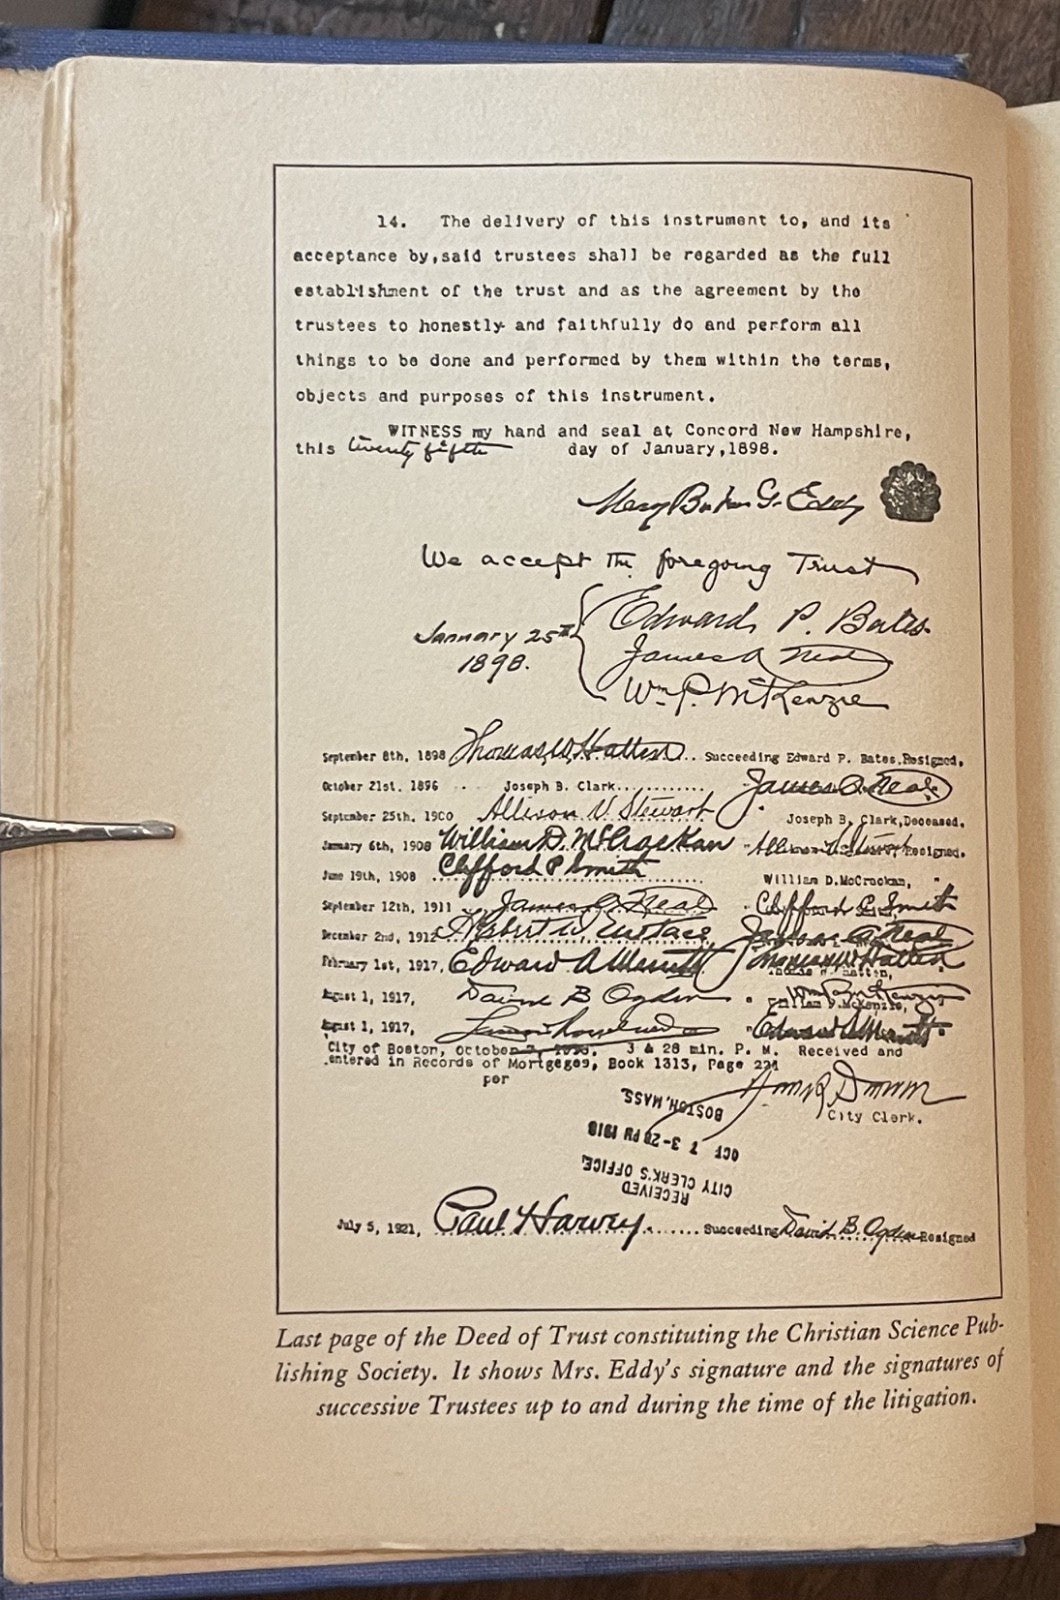 14. The delivery of this instrument to, and its
acceptance by, said trustees shall be regarded as the full
establishment of the trust and as the agreement by the
trustees to honestly and faithfully do and perform all
things to be done and performed by them within the terms,
objects and purposes of this instrument.
WITNESS my hand and seal at Concord New Hampshire,
this twenty fifth day of January, 1898.
Mary Baker G. Eddy
We accept the foregoing Trust
January 25th 1898.
Edward P. Bates.
James A Neal
Wm. P. McKenzie
September 8th, 1898 Thomas W. Hatten Succeeding Edward P. Bates, Resigned.
October 21st, 1898 Joseph B. Clark James A. Neal
September 25th, 1900 Allison V. Stewart Joseph B. Clark, Deceased.
January 6th, 1908 William D. McCrackan Allison V. Stewart, Resigned.
June 19th, 1908 Clifford P Smith William D. McCrackan, "
September 12th, 1911 James A. Neal Clifford P. Smith
December 2nd, 1912 Herbert W. Eustace James A. Neal
February 1st, 1917, Edward A Merritt Thomas W Hatten
August 1, 1917, David B Ogden Wm P McKenzie
William P. McKenzie,
August 1, 1917, Edward A Merritt
City of Boston, October 3 & 28 min. P. M. Received and
entered in Records of Mortgeges, Book 1313, Page
per
City Clerk.
RECEIVED
CITY CLERK'S OFFICE.
OCT 7 3-28 PM 1918
BOSTON, MASS.
July 5, 1921, Paul Harvey. Succeeding David B. Ogden Resigned
Last page of the Deed of Trust constituting the Christian Science Pub-
lishing Society. It shows Mrs. Eddy's signature and the signatures of
successive Trustees up to and during the time of the litigation.